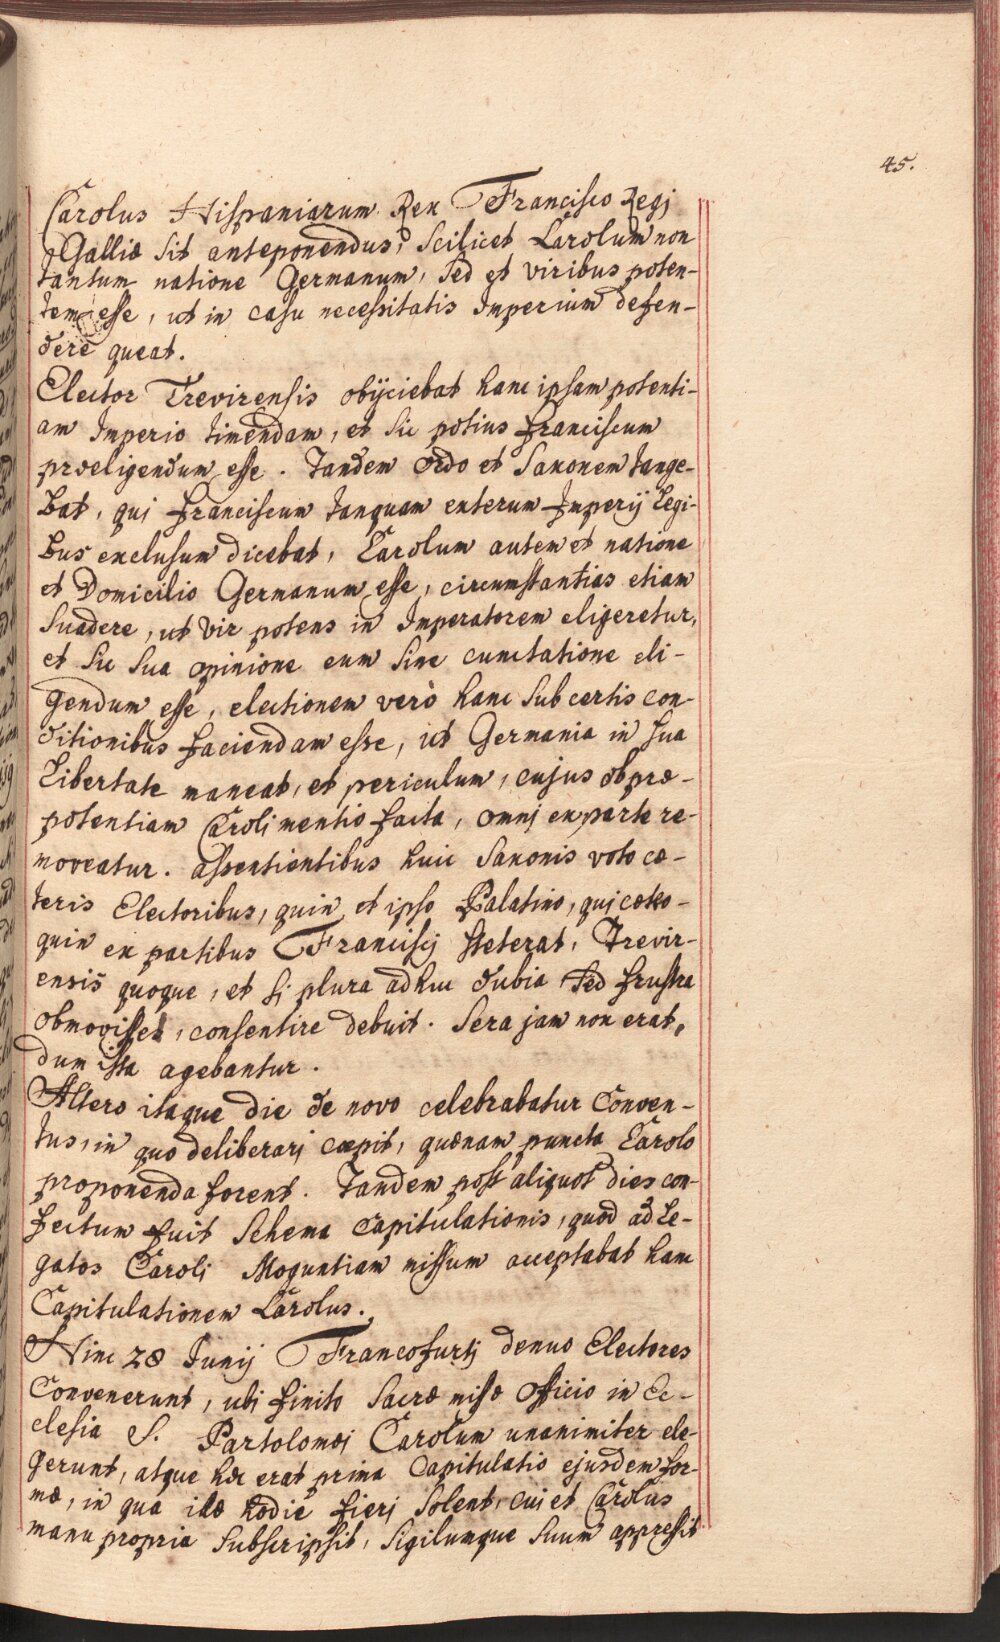 45.
Carolus Hispaniarum Rex Francisco Regi
Galliæ sit anteponendus, scilicet Carolum non
tantum natione Germanum, sed et viribus poten-
tem esse, ut in casu necessitatis Imperium defen-
dere queat.
Elector Trevirensis obijciebat hanc ipsam potenti-
am Imperio timendam, et sic potius Franciscum
præeligendum esse. Tandem ordo et Saxonem tange-
bat, qui Franciscum tanquam exterum Imperij Legi-
bus exclusum dicebat, Carolum autem et natione
et Domicilio Germanum esse, circumstantias etiam
suadere, ut vir potens in Imperatorem eligeretur,
et sic sua opinione eum sine cunctatione eli-
gendum esse, electionem verò hanc sub certis con-
ditionibus faciendam esse, ut Germania in sua
Libertate maneat, et periculum, cujus ob præ-
potentiam Caroli mentio facta, omni ex parte re-
moveatur. assentientibus huic Saxonis voto cæ-
teris Electoribus, quin et ipso Palatino, qui cætero-
quin ex partibus Francisci steterat, Trevir-
ensis quoque, et si plura adhuc dubia sed frustra
obmovisset, consentire debuit. Sera jam non erat,
dum ista agebantur.
Altero itaque die de novo celebrabatur Conven-
tus, in quo deliberari cæpit, quænam puncta Carolo
proponenda forent. Tandem post aliquot dies con-
fectum fuit Schema Capitulationis, quod ad Le-
gatos Caroli Moguntiam missum acceptabat hanc
Capitulationem Carolus.
Hinc 28 Junij Francofurti denuo Electores
Convenerunt, ubi finito Sacræ missæ officio in Ec-
clesia S. Partolomæi Carolum unanimiter ele-
gerunt, atque hæc erat prima Capitulatio ejusdem for-
mæ, in qua ilæ hodie fieri solent, cui et Carolus
manu propria subscripsit, Sigilumque suum appressit